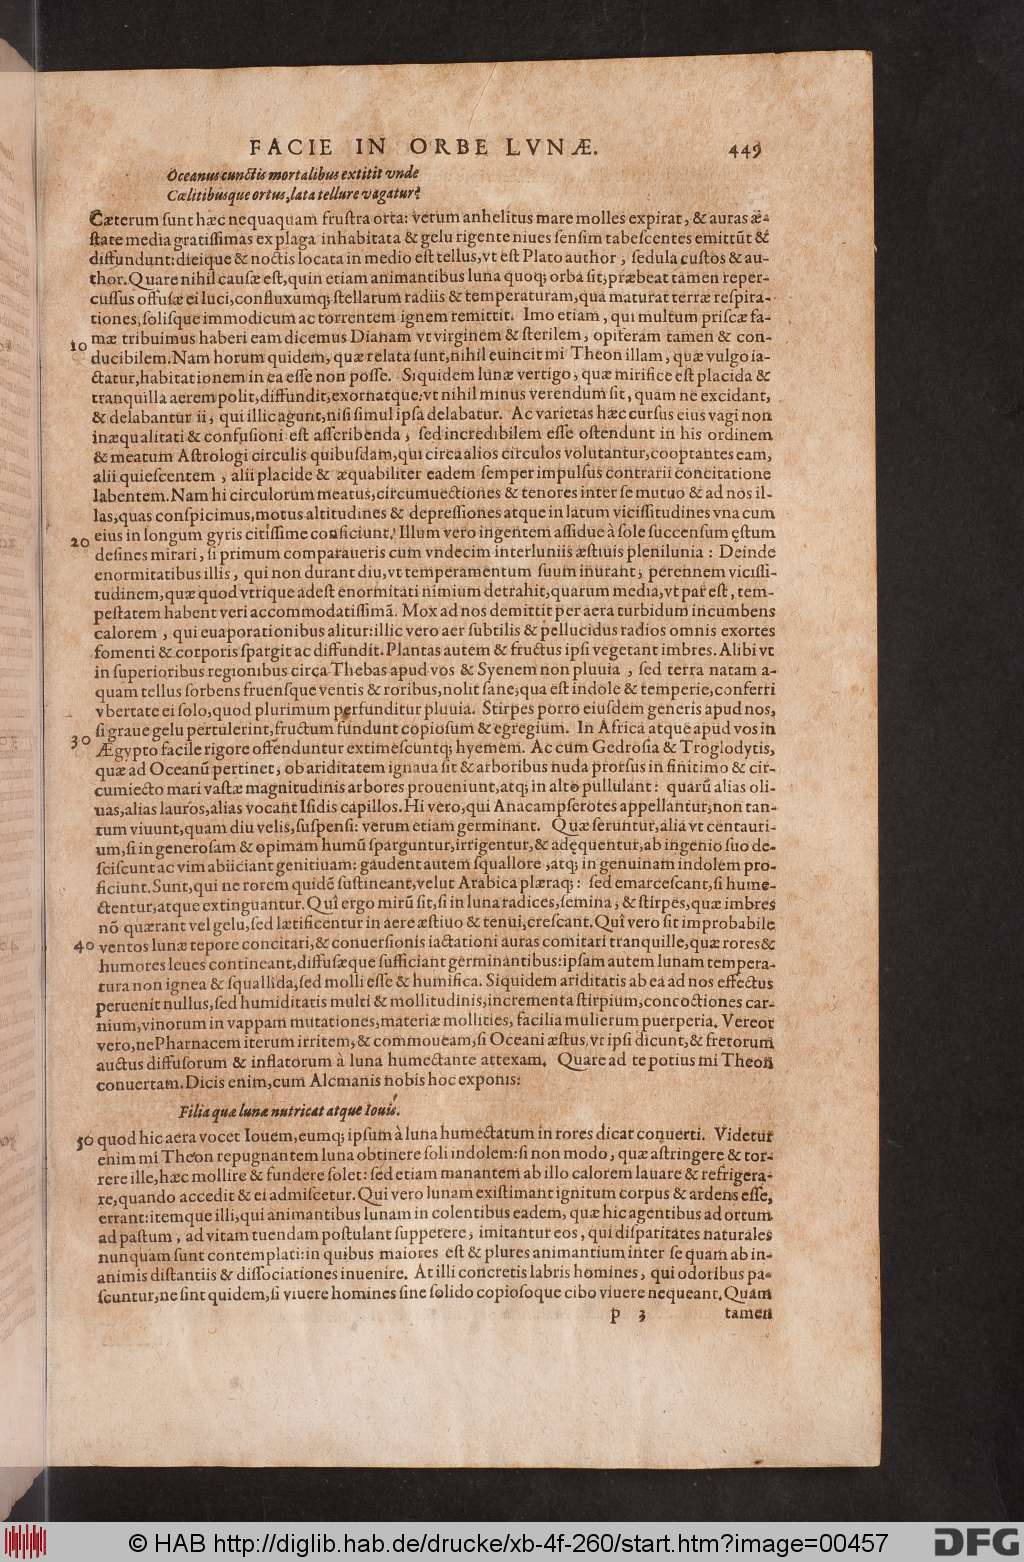 FACIE IN ORBE LVNÆ. 449
Oceanus cunctis mortalibus extitit vnde
Cælitibusque ortus, lata tellure vagatur?
Cæterum sunt hæc nequaquam frustra orta: verum anhelitus mare molles expirat, & auras æ-
state media gratissimas ex plaga inhabitata & gelu rigente niues sensim tabescentes emittũt &
diffundunt: dieique & noctis locata in medio est tellus, vt est Plato author, sedula custos & au-
thor. Quare nihil causæ est, quin etiam animantibus luna quoq; orba sit; præbeat tamen reper-
cussus offusæ ei luci, confluxumq; stellarum radiis & temperaturam, qua maturat terræ respira-
tiones, solisque immodicum ac torrentem ignem remittit. Imo etiam, qui multum priscæ fa-
mæ tribuimus haberi eam dicemus Dianam vt virginem & sterilem, opiferam tamen & con-
10 ducibilem. Nam horum quidem, quæ relata sunt, nihil euincit mi Theon illam, quæ vulgo ia-
ctatur, habitationem in ea esse non posse. Siquidem lunæ vertigo, quæ mirifice est placida &
tranquilla aerem polit, diffundit, exornatque: vt nihil minus verendum sit, quam ne excidant,
& delabantur ii, qui illic agunt, nisi simul ipsa delabatur. Ac varietas hæc cursus eius vagi non
inæqualitati & confusioni est asscribenda, sed incredibilem esse ostendunt in his ordinem
& meatum Astrologi circulis quibusdam, qui circa alios circulos volutantur, cooptantes eam,
alii quiescentem, alii placide & æquabiliter eadem semper impulsus contrarii concitatione
labentem. Nam hi circulorum meatus, circumuectiones & tenores inter se mutuo & ad nos il-
las, quas conspicimus, motus altitudines & depressiones atque in latum vicissitudines vna cum
eius in longum gyris citissime conficiunt. Illum vero ingentem assidue à sole succensum ęstum
20 desines mirari, si primum comparaueris cum vndecim interluniis æstiuis plenilunia: Deinde
enormitatibus illis, qui non durant diu, vt temperamentum suum inurant, perennem vicissi-
tudinem, quæ quod vtrique adest enormitati nimium detrahit, quarum media, vt par est, tem-
pestatem habent veri accommodatissimã. Mox ad nos demittit per aera turbidum incumbens
calorem, qui euaporationibus alitur: illic vero aer subtilis & pellucidus radios omnis exortes
fomenti & corporis spargit ac diffundit. Plantas autem & fructus ipsi vegetant imbres. Alibi vt
in superioribus regionibus circa Thebas apud vos & Syenem non pluuia, sed terra natam a-
quam tellus sorbens fruensque ventis & roribus, nolit sane, qua est indole & temperie, conferri
vbertate ei solo, quod plurimum perfunditur pluuia. Stirpes porro eiusdem generis apud nos,
si graue gelu pertulerint, fructum fundunt copiosum & egregium. In Africa atque apud vos in
30 Ægypto facile rigore offenduntur extimescuntq; hyemem. Ac cum Gedrosia & Troglodytis,
quæ ad Oceanũ pertinet, ob ariditatem ignaua sit & arboribus nuda prorsus in finitimo & cir-
cumiecto mari vastæ magnitudinis arbores proueniunt, atq; in alto pullulant: quarũ alias oli-
uas, alias lauros, alias vocant Isidis capillos. Hi vero, qui Anacampserotes appellantur, non tan-
tum viuunt, quam diu velis, suspensi: verum etiam germinant. Quæ seruntur, alia vt centauri-
um, si in generosam & opimam humũ sparguntur, irrigentur, & adęquentur, ab ingenio suo de-
sciscunt ac vim abiiciant genitiuam: gaudent autem squallore, atq; in genuinam indolem pro-
ficiunt. Sunt, qui ne rorem quidẽ sustineant, velut Arabica plæraq;: sed emarcescant, si hume-
ctentur, atque extinguantur. Quî ergo mirũ sit, si in luna radices, semina, & stirpes, quæ imbres
nõ quærant vel gelu, sed lætificentur in aere æstiuo & tenui, crescant. Quî vero sit improbabile
40 ventos lunæ tepore concitari, & conuersionis iactationi auras comitari tranquille, quæ rores &
humores leues contineant, diffusæque sufficiant germinantibus: ipsam autem lunam tempera-
tura non ignea & squallida, sed molli esse & humifica. Siquidem ariditatis ab ea ad nos effectus
peruenit nullus, sed humiditatis multi & mollitudinis, incrementa stirpium, concoctiones car-
nium, vinorum in vappam mutationes, materiæ mollities, facilia mulierum puerperia. Vereor
vero, ne Pharnacem iterum irritem, & commoueam, si Oceani æstus, vt ipsi dicunt, & fretorum
auctus diffusorum & inflatorum à luna humectante attexam. Quare ad te potius mi Theon
conuertam. Dicis enim, cum Alcmanis nobis hoc exponis:
Filia quæ lunæ nutricat atque Iouis.
50 quod hic aera vocet Iouem, eumq; ipsum à luna humectatum in rores dicat conuerti. Videtur
enim mi Theon repugnantem luna obtinere soli indolem: si non modo, quæ astringere & tor-
rere ille, hæc mollire & fundere solet: sed etiam manantem ab illo calorem lauare & refrigera-
re, quando accedit & ei admiscetur. Qui vero lunam existimant ignitum corpus & ardens esse,
errant: itemque illi, qui animantibus lunam in colentibus eadem, quæ hic agentibus ad ortum
ad pastum, ad vitam tuendam postulant suppetere, imitantur eos, qui disparitates naturales
nunquam sunt contemplati: in quibus maiores est & plures animantium inter se quam ab in-
animis distantiis & dissociationes inuenire. At illi concretis labris homines, qui odoribus pa-
scuntur, ne sint quidem, si viuere homines sine solido copiosoque cibo viuere nequeant. Quam
p 3 tamen
© HAB http://diglib.hab.de/drucke/xb-4f-260/start.htm?image=00457 DFG